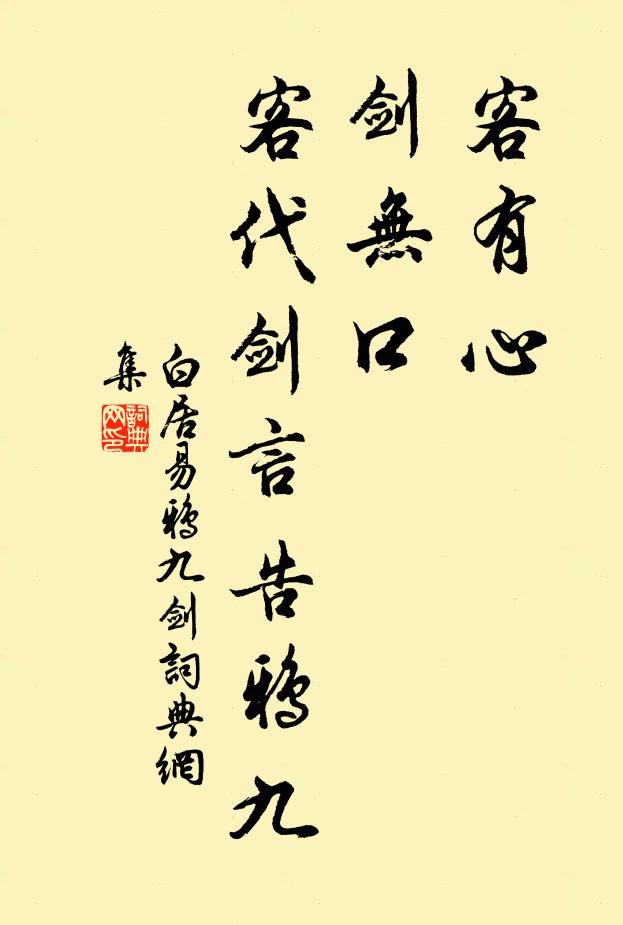 客有心
劍無口
客代劍言告鴉九
白居易鴉九劍詞典網
集
詞典
网印